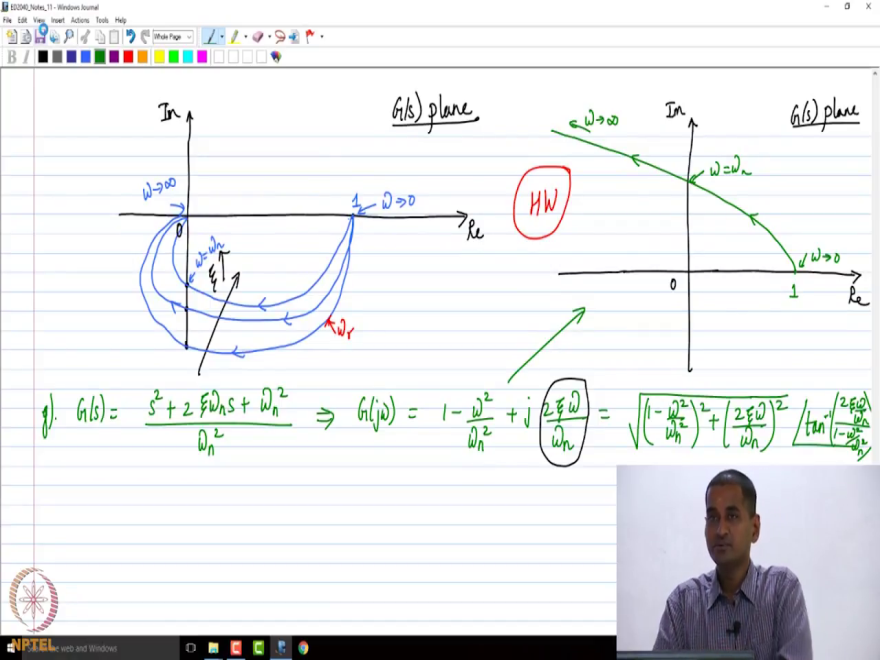 ED2040_Notes_11 - Windows Journal
File Edit View Insert Actions Tools Help
Whole Page
B I
Im
G(s) plane
ω→∞
0
1
ω→0
Re
ω=ωn
ξ
ωr
HW
Im
G(s) plane
ω→∞
ω=ωn
ω→0
0
1
Re
g). G(s) = (s² + 2ξωn s + ωn²)/ωn² ⇒ G(jω) = 1 - ω²/ωn² + j 2ξω/ωn = √((1-ω²/ωn²)² + (2ξω/ωn)²) ∠tan⁻¹((2ξω/ωn)/(1-ω²/ωn²))
NPTEL
the web and Windows